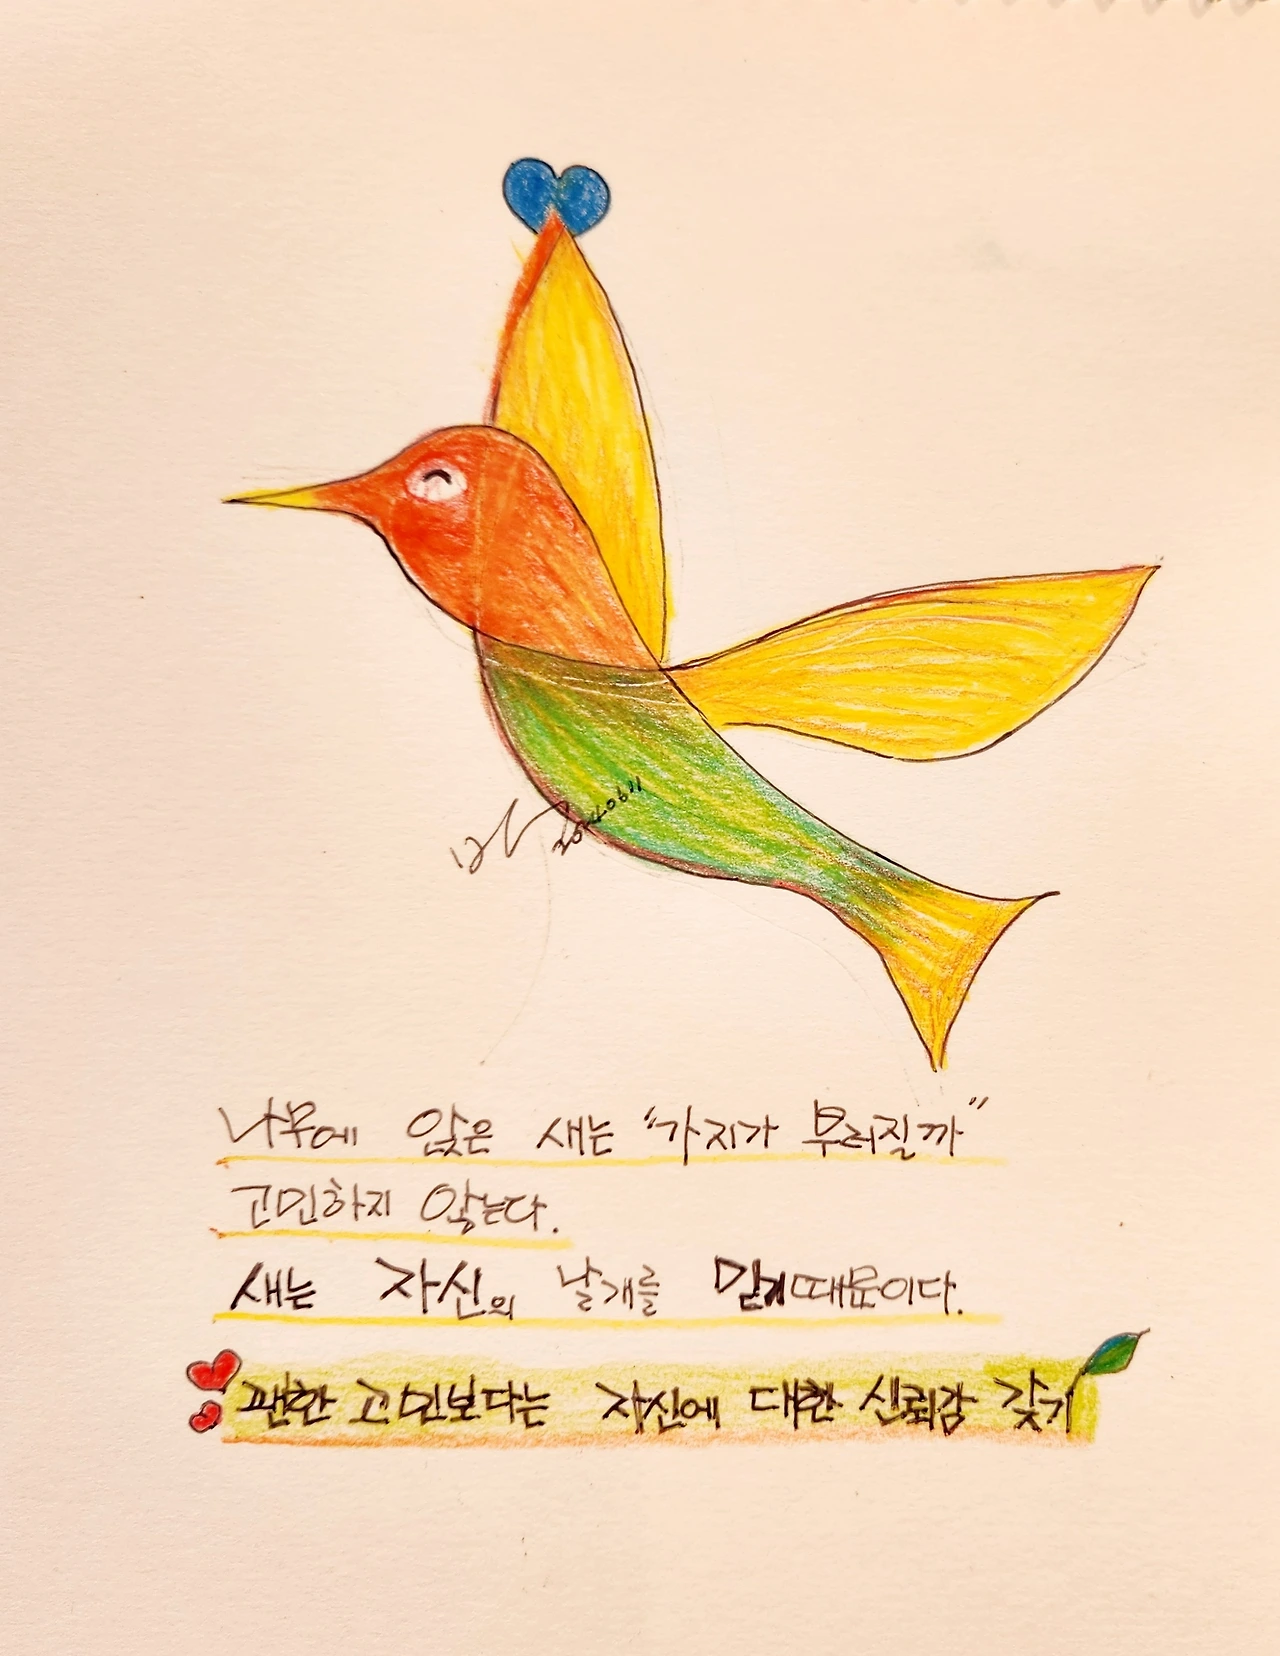 20240611
나무에 앉은 새는 "가지가 부러질까"
고민하지 않는다.
새는 자신의 날개를 믿기때문이다.
괜한 고민보다는 자신에 대한 신뢰감 갖기